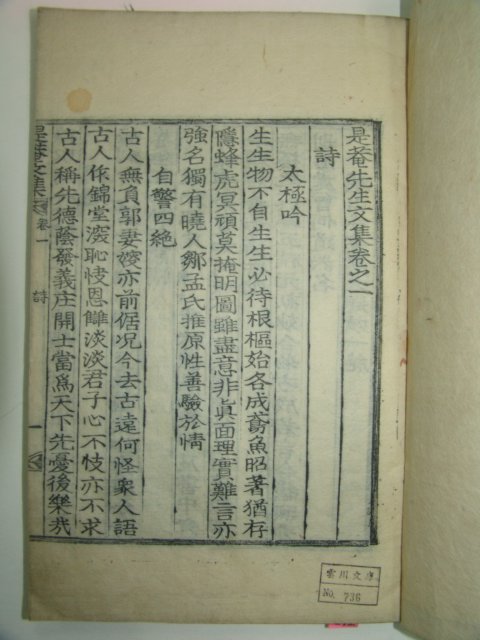 是菴先生文集卷之一
詩
太極吟
生生物不自生生必待根樞始各成鳶魚昭著猶存
隱蜂虎冥頑莫掩明圖雖盡意非眞面理實難言亦
強名獨有曉人鄒孟氏推原性善驗於情
自警四絶
古人無負郭妻嫂亦前倨況今去古遠何怪衆人語
古人依錦堂深恥快恩讎淡淡君子心不忮亦不求
古人稱先德蔭發義庄開士當爲天下先憂後樂哉
是菴文集
卷一
詩
一
雲川文庫
No. 736